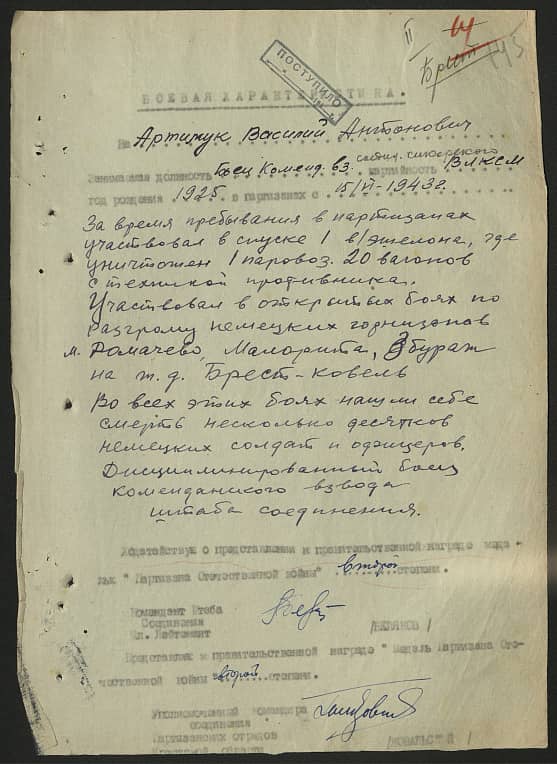 II 14
Брест 145
ПОСТУПИЛО
БОЕВАЯ ХАРАКТЕРИСТИКА.
На Артижук Василий Антонович
Занимаемая должность Боец Коменд. вз. соедин. партийность ВЛКСМ
год рождения 1925 в партизанах с 15/VI-1943г.
За время пребывания в партизанах
участвовал в спуске 1 в/эшелона, где
уничтожен 1 паровоз. 20 вагонов
с техникой противника.
Участвовал в открытых боях по
разгрому немецких горнизонов
м. Домачево, Малорита, Збураж
на ж.д. Брест-Ковель
Во всех этих боях нашли себе
смерть несколько десятков
немецких солдат и офицеров.
Дисциплинированный боец
команданского взвода
штаба соединения.
Ходатайствую о представлении к правительственной награде меда-
лью "Партизана Отечественной войны" второй степени.
Комендант Штаба
Соединения
Мл. Лейтенант /БЕЛЯКОВ/
Представляю к правительственной награде "Медаль Партизана Оте-
чественной войны второй степени.
Уполномоченный командира
соединения
Партизанских отрядов
Брестской области /КОВАЛЬСКИЙ/